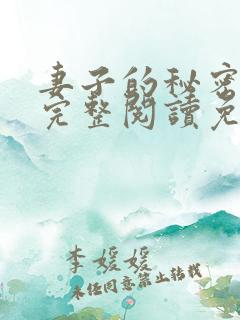 妻子的秘密
完整阅读免
李媛媛
未经同意禁止转载